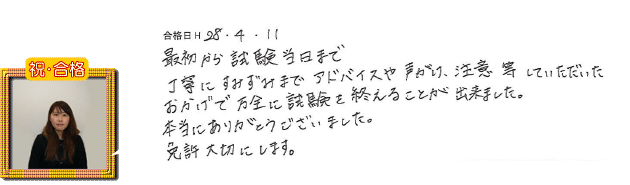 祝・合格
合格日 H 28・4・11
最初から試験当日まで
丁寧にすみずみまでアドバイスや声がけ、注意等していただいた
おかげで万全に試験を終えることが出来ました。
本当にありがとうございました。
免許大切にします。